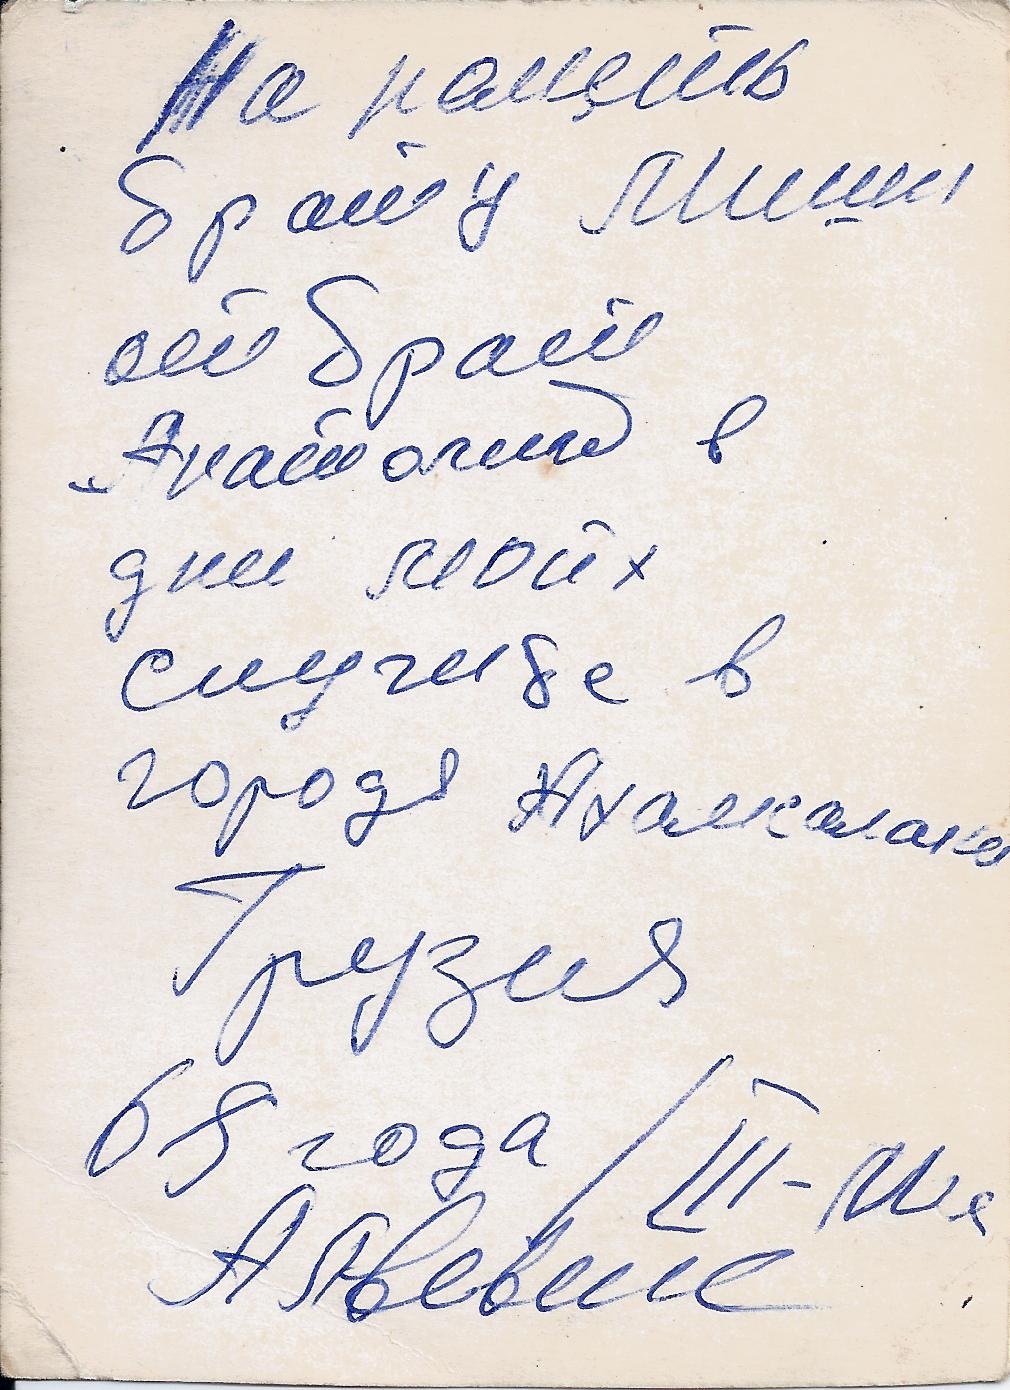 На память
брату Миши
от брат
Анатолия в
дни моих
службе в
городя Ахалкалаки
Грузия
68 года / III-